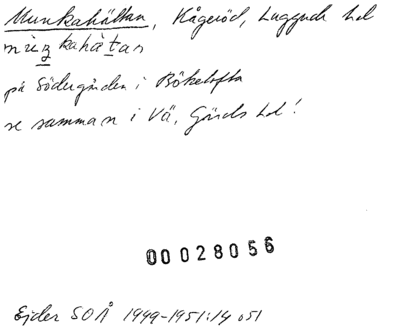 Munkahättan, Kågeröd, Luggude hd
muŋkahätan
på Södergården i Bökelofta
se samman i Vä, Gärds hd!
00028056
Ejder SOÅ 1949-1951:14 o51